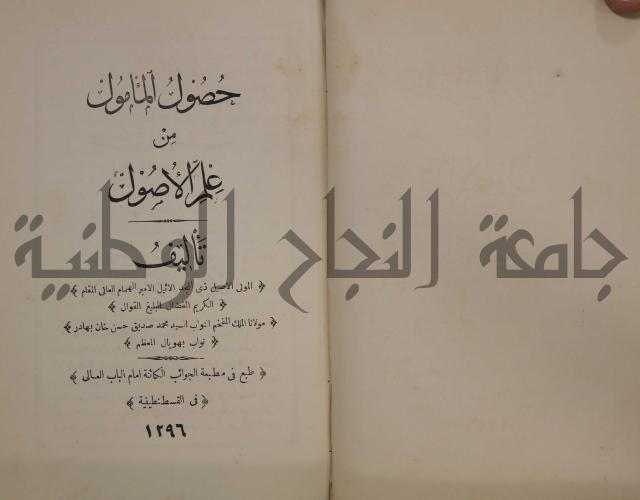 حُصُولُ المَأمُولْ
مِنْ
عِلْمِ الأُصُولْ
تَأْلِيفُ
﴿ المولى الاصيل ذى المجد الاثيل الامير الهمام العالى المقام ﴾
﴿ الكريم المفضال البليغ القوال ﴾
﴿ مولانا الملك المفخم النواب السيد محمد صديق حسن خان بهادر ﴾
﴿ نواب بهوپال المعظم ﴾
﴿ طبع فى مطبعة الجوائب الكائنة امام الباب العالى ﴾
﴿ فى القسطنطينية ﴾
١٢٩٦
جامعة النجاح الوطنية